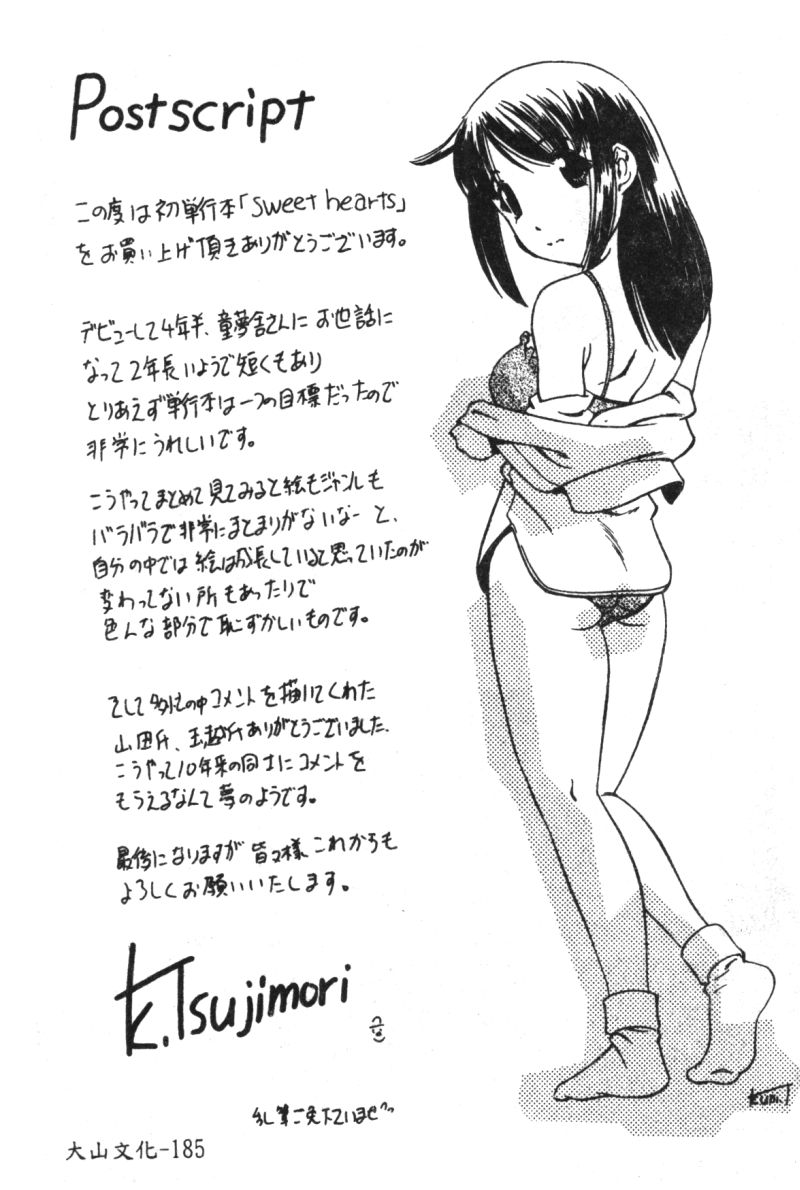 Postscript
この度は初単行本「sweet hearts」
をお買い上げ頂きありがとうございます。
デビューして4年半、童夢舎さんにお世話に
なって2年長いようで短くもあり
とりあえず単行本は一つの目標だったので
非常にうれしいです。
こうやってまとめて見てみると絵もジャンルも
バラバラで非常にまとまりがないなーと、
自分の中では絵は成長していると思っていたのが
変わってない所もあったりで
色んな部分で恥ずかしいものです。
そして多忙の中コメントを描いてくれた
山田氏、玉越氏ありがとうございました。
こうやって10年来の同士にコメントを
もらえるなんて夢のようです。
最後になりますが皆々様、これからも
よろしくお願いいたします。
K.Tsujimori
乱筆ご免下さいませ
KUMI.T
大山文化-185